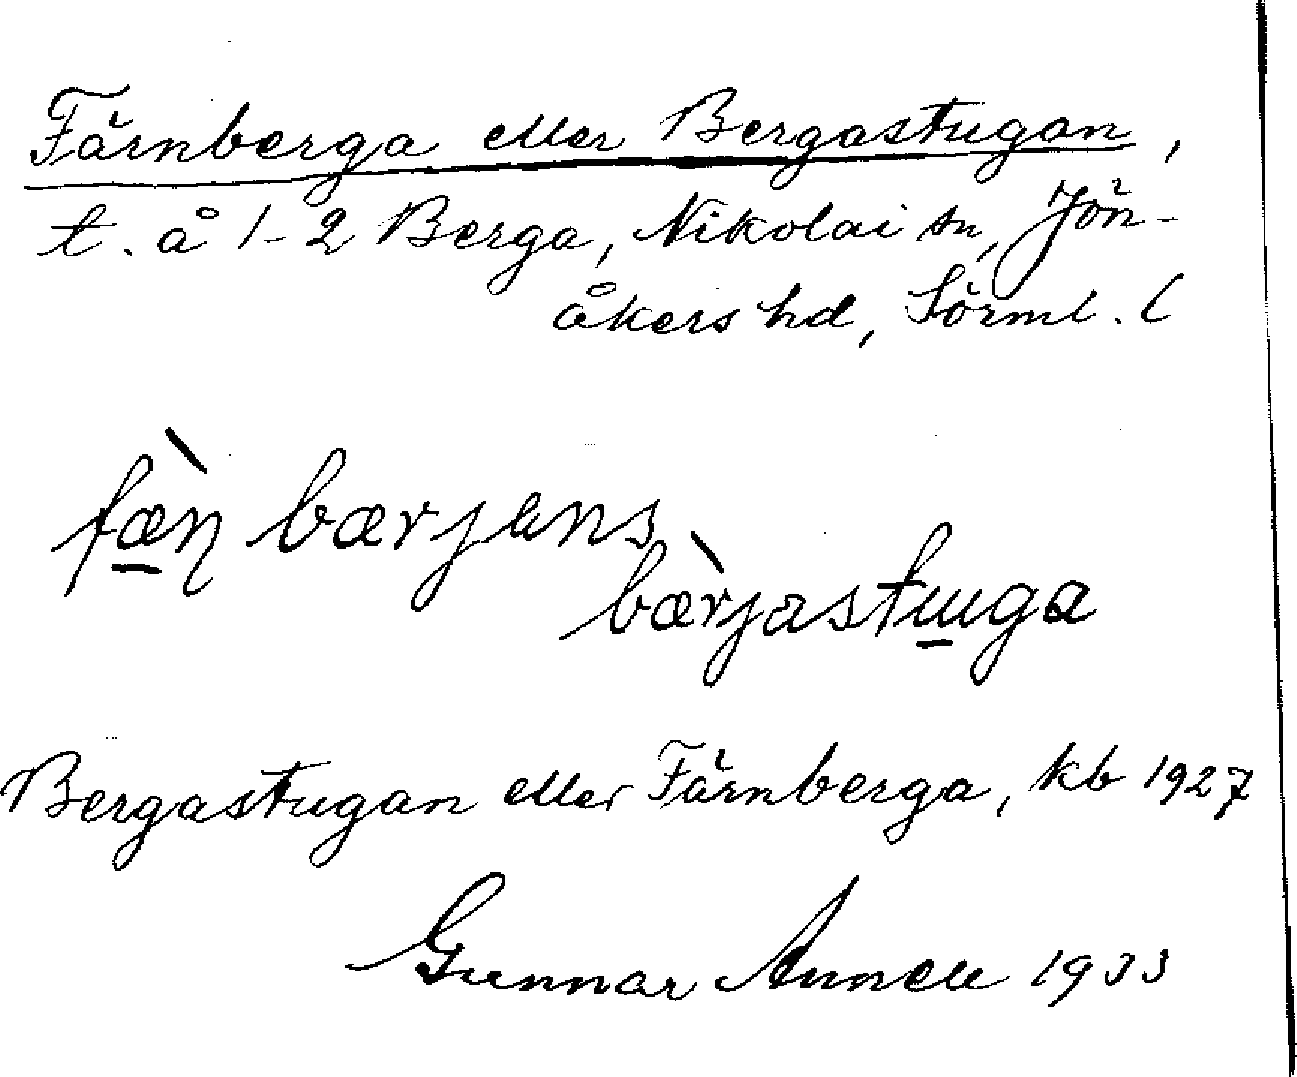 Färnberga eller Bergastugan,
t. å 1-2 Berga, Nikolai sn, Jön-
åkers hd, Sörml. (
fæ̀ɳ bærjens
bæ̀rjastuga
Bergastugan eller Färnberga, kb 1927
Gunnar Annell 1933